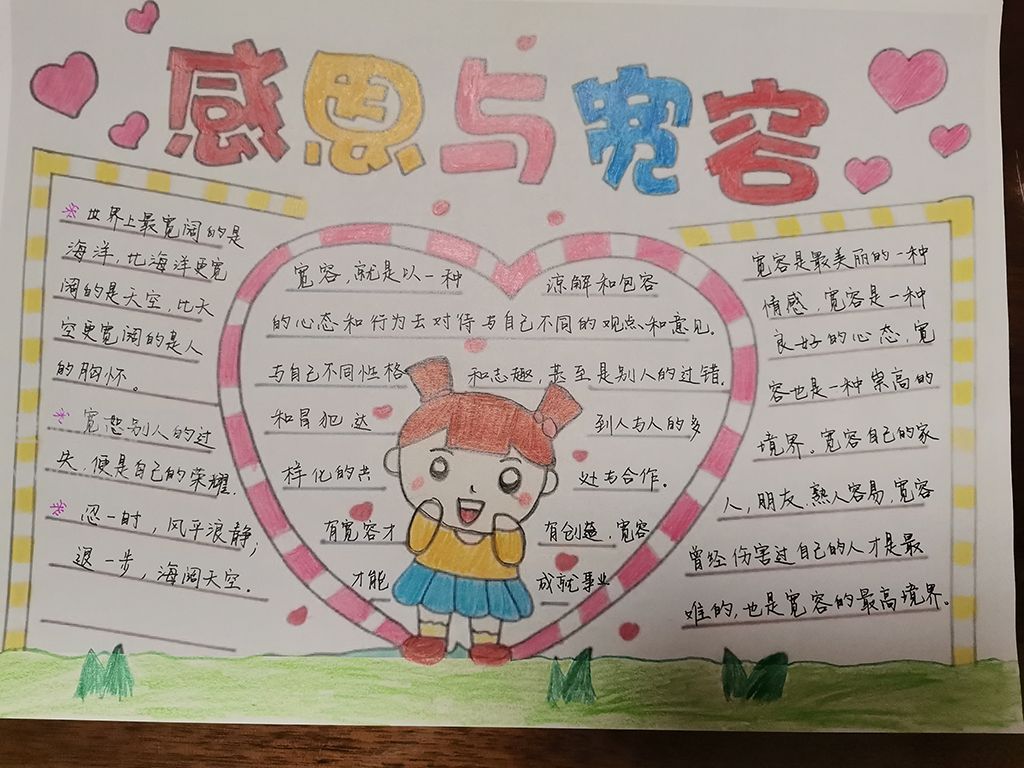 感恩与宽容
世界上最宽阔的是
海洋,比海洋更宽
阔的是天空,比天
空更宽阔的是人
的胸怀。
宽恕别人的过
失,便是自己的荣耀.
忍一时,风平浪静;
退一步,海阔天空.
宽容,就是以一种 谅解和包容
的心态和行为去对待与自己不同的观点和意见.
与自己不同性格 和志趣,甚至是别人的过错.
和冒犯,达 到人与人的多
样化的共 处与合作.
有宽容才 有创造,宽容
才能 成就事业
宽容是最美丽的一种
情感,宽容是一种
良好的心态,宽
容也是一种崇高的
境界。宽容自己的家
人,朋友.熟人容易,宽容
曾经伤害过自己的人才是最
难的,也是宽容的最高境界。